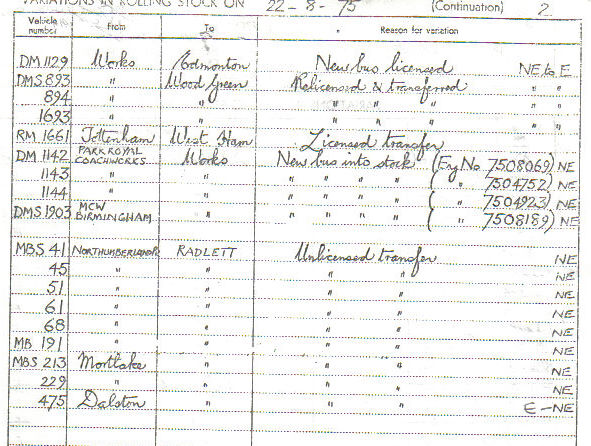 VARIATIONS IN ROLLING STOCK ON 22-8-75 (Continuation) 2
Vehicle number From To Reason for variation
DM 1129 Works Edmonton New bus licensed NE to E
DMS 893 " Wood Green Relicensed & transferred " "
894 " " " " " " "
1693 " " " " " " "
RM 1661 Tottenham West Ham Licensed transfer
DM 1142 PARK ROYAL COACHWORKS Works New bus into stock (Eng No. 7508069) NE
1143 " " " " " " ( " 7504752) NE
1144 " " " " " " ( " 7504923) NE
DMS 1903 MCW BIRMINGHAM " " " " " ( " 7508189) NE
MBS 41 NORTHUMBERLAND PK RADLETT Unlicensed transfer NE
45 " " " " NE
51 " " " " NE
61 " " " " NE
68 " " " " NE
MB 191 " " " " NE
MBS 213 Mortlake " " " NE
229 " " " " NE
475 Dalston " " " E-NE